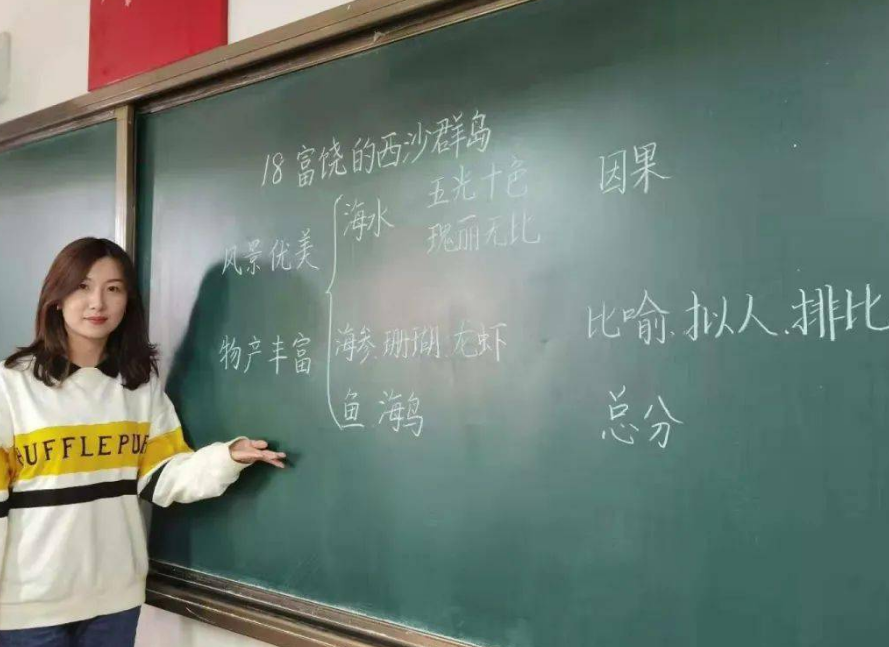 18 富饶的西沙群岛
风景优美 海水 五光十色 因果
瑰丽无比
物产丰富 海参、珊瑚、龙虾 比喻、拟人、排比
鱼、海鸟 总分
HUFFLEPUF